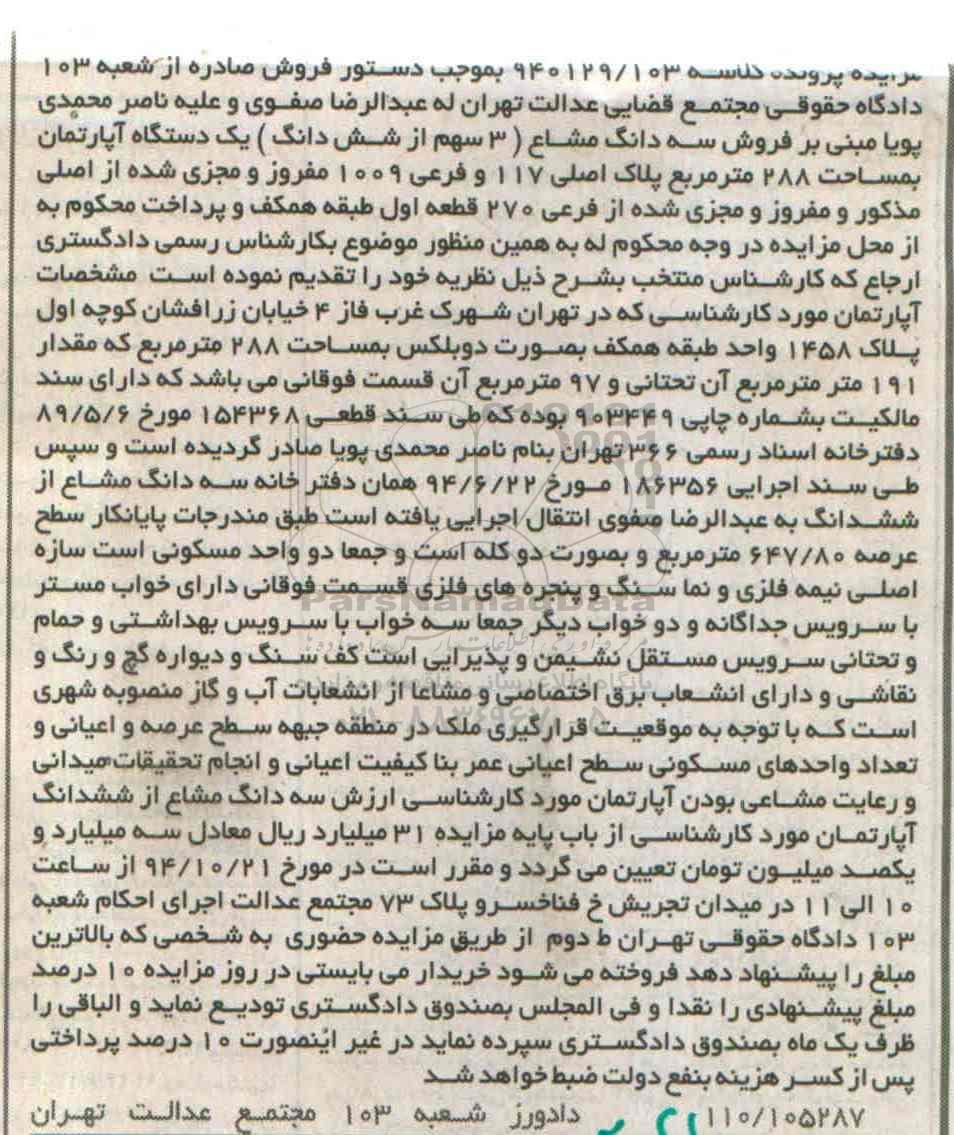 مزایده پرونده کلاسه ۹۴۰۱۲۹/۱۰۳ بموجب دستور فروش صادره از شعبه ۱۰۳
دادگاه حقوقی مجتمع قضایی عدالت تهران له عبدالرضا صفوی و علیه ناصر محمدی
پویا مبنی بر فروش سه دانگ مشاع ( ۳ سهم از شش دانگ ) یک دستگاه آپارتمان
بمساحت ۲۸۸ مترمربع پلاک اصلی ۱۱۷ و فرعی ۱۰۰۹ مفروز و مجزی شده از اصلی
مذکور و مفروز و مجزی شده از فرعی ۲۷۰ قطعه اول طبقه همکف و پرداخت محکوم به
از محل مزایده در وجه محکوم له به همین منظور موضوع بکارشناس رسمی دادگستری
ارجاع که کارشناس منتخب بشرح ذیل نظریه خود را تقدیم نموده است مشخصات
آپارتمان مورد کارشناسی که در تهران شهرک غرب فاز ۴ خیابان زرافشان کوچه اول
پلاک ۱۴۵۸ واحد طبقه همکف بصورت دوبلکس بمساحت ۲۸۸ مترمربع که مقدار
۱۹۱ متر مترمربع آن تحتانی و ۹۷ مترمربع آن قسمت فوقانی می باشد که دارای سند
مالکیت بشماره چاپی ۹۰۳۴۴۹ بوده که طی سند قطعی ۱۵۴۳۶۸ مورخ ۸۹/۵/۶
دفترخانه اسناد رسمی ۳۶۶ تهران بنام ناصر محمدی پویا صادر گردیده است و سپس
طی سند اجرایی ۱۸۶۳۵۶ مورخ ۹۴/۶/۲۲ همان دفتر خانه سه دانگ مشاع از
ششدانگ به عبدالرضا صفوی انتقال اجرایی یافته است طبق مندرجات پایانکار سطح
عرصه ۶۴۷/۸۰ مترمربع و بصورت دو کله است و جمعا دو واحد مسکونی است سازه
اصلی نیمه فلزی و نما سنگ و پنجره های فلزی قسمت فوقانی دارای خواب مستر
ParsNamadData
با سرویس جداگانه و دو خواب دیگر جمعا سه خواب با سرویس بهداشتی و حمام
و تحتانی سرویس مستقل نشیمن و پذیرایی است کف سنگ و دیواره گچ و رنگ و
نقاشی و دارای انشعاب برق اختصاصی و مشاعا از انشعابات آب و گاز منصوبه شهری
است که با توجه به موقعیت قرارگیری ملک در منطقه جبهه سطح عرصه و اعیانی و
تعداد واحدهای مسکونی سطح اعیانی عمر بنا کیفیت اعیانی و انجام تحقیقات میدانی
و رعایت مشاعی بودن آپارتمان مورد کارشناسی ارزش سه دانگ مشاع از ششدانگ
آپارتمان مورد کارشناسی از باب پایه مزایده ۳۱ میلیارد ریال معادل سه میلیارد و
یکصد میلیون تومان تعیین می گردد و مقرر است در مورخ ۹۴/۱۰/۲۱ از ساعت
۱۰ الی ۱۱ در میدان تجریش خ فناخسرو پلاک ۷۳ مجتمع عدالت اجرای احکام شعبه
۱۰۳ دادگاه حقوقی تهران ط دوم از طریق مزایده حضوری به شخصی که بالاترین
مبلغ را پیشنهاد دهد فروخته می شود خریدار می بایستی در روز مزایده ۱۰ درصد
مبلغ پیشنهادی را نقدا و فی المجلس بصندوق دادگستری تودیع نماید و الباقی را
ظرف یک ماه بصندوق دادگستری سپرده نماید در غیر اینصورت ۱۰ درصد پرداختی
پس از کسر هزینه بنفع دولت ضبط خواهد شد
۱۱۰/۱۰۵۲۸۷ دادورز شعبه ۱۰۳ مجتمع عدالت تهران